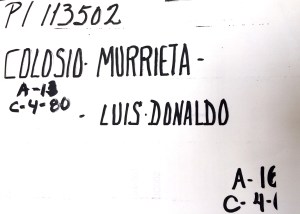 P/ 113502
COLOSIO- MURRIETA-
A-13
C-4-80
- LUIS-DONALDO
A-16
C-4-